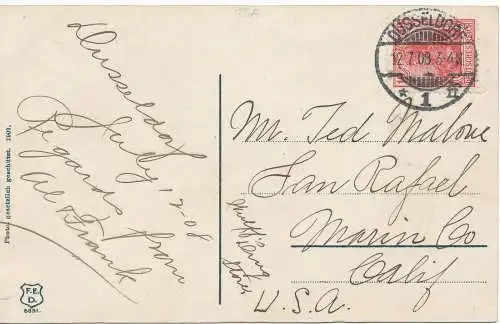 Dusseldorf
July 12-08
Regards from
Al & Frank
Mr. Ted Malone
San Rafael
Marin Co
Calif
U.S.A.
DÜSSELDORF
12.7.08.3-4N
* 1 n
Photo. gesetzlich geschützt. 1907.
F.E.
D.